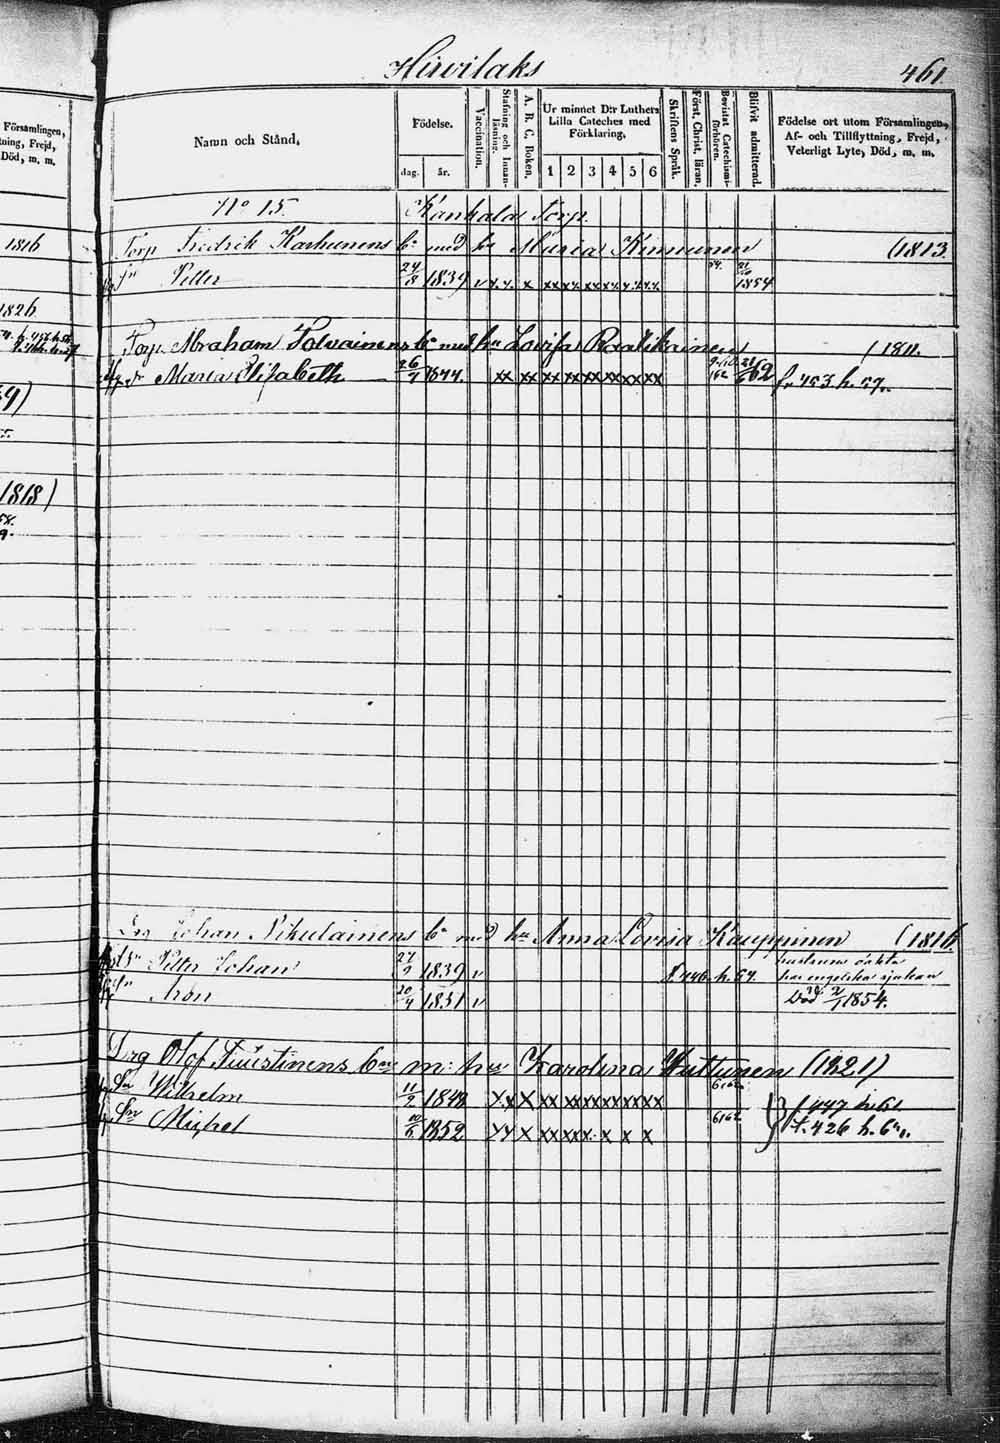 Församlingen,
tning, Frejd,
Död, m. m.
1816
1826
1818)
Hirvilaks 461.
Namn och Stånd,
Födelse.
dag. år.
Vaccination.
Stafning och Innan-
läsning.
A. B. C. Boken.
Ur minnet D:r Luthers
Lilla Cateches med
Förklaring.
1 2 3 4 5 6
Skriftens Språk.
Först. Christ. läran.
Bevistat Catechismi-
förhören.
Blifvit admitterad.
Födelse ort utom Församlingen,
Af- och Tillflyttning, Frejd,
Veterligt Lyte, Död, m. m.
No 15. Kanhala Torp.
Torp Fredrik Karhunens med Maria Kinnunen (1813.
Sn Petter 24/8 1839 v x x x xx xx xx xx x x xx 1854
Torp Abraham Tolvainens med hu Lovisa Raatikainen (1811.
Maria Elisabeth 26/9 1844. xx xx xx xx xx xx xx xx 62 f. 453 h. 57.
Johan Nikulainens med hu Anna Lovisa Kauppinen (1816
Sn Petter Johan 27/9 1839 v f. 446. h. 57. har engelska sjukan
Sn Aron 20/4 1851 v Död 2/1 1854.
Drg Olof Tuustinens m: hu Karolina Huttunen (1821)
Sn Wilhelm 11/2 1848 x x x xx xx xx xx xx xx 6162 f. 447 h. 61.
Sn Michel 10/6 1852 x x x xx xx x x x x 6162 f. 426 h. 6